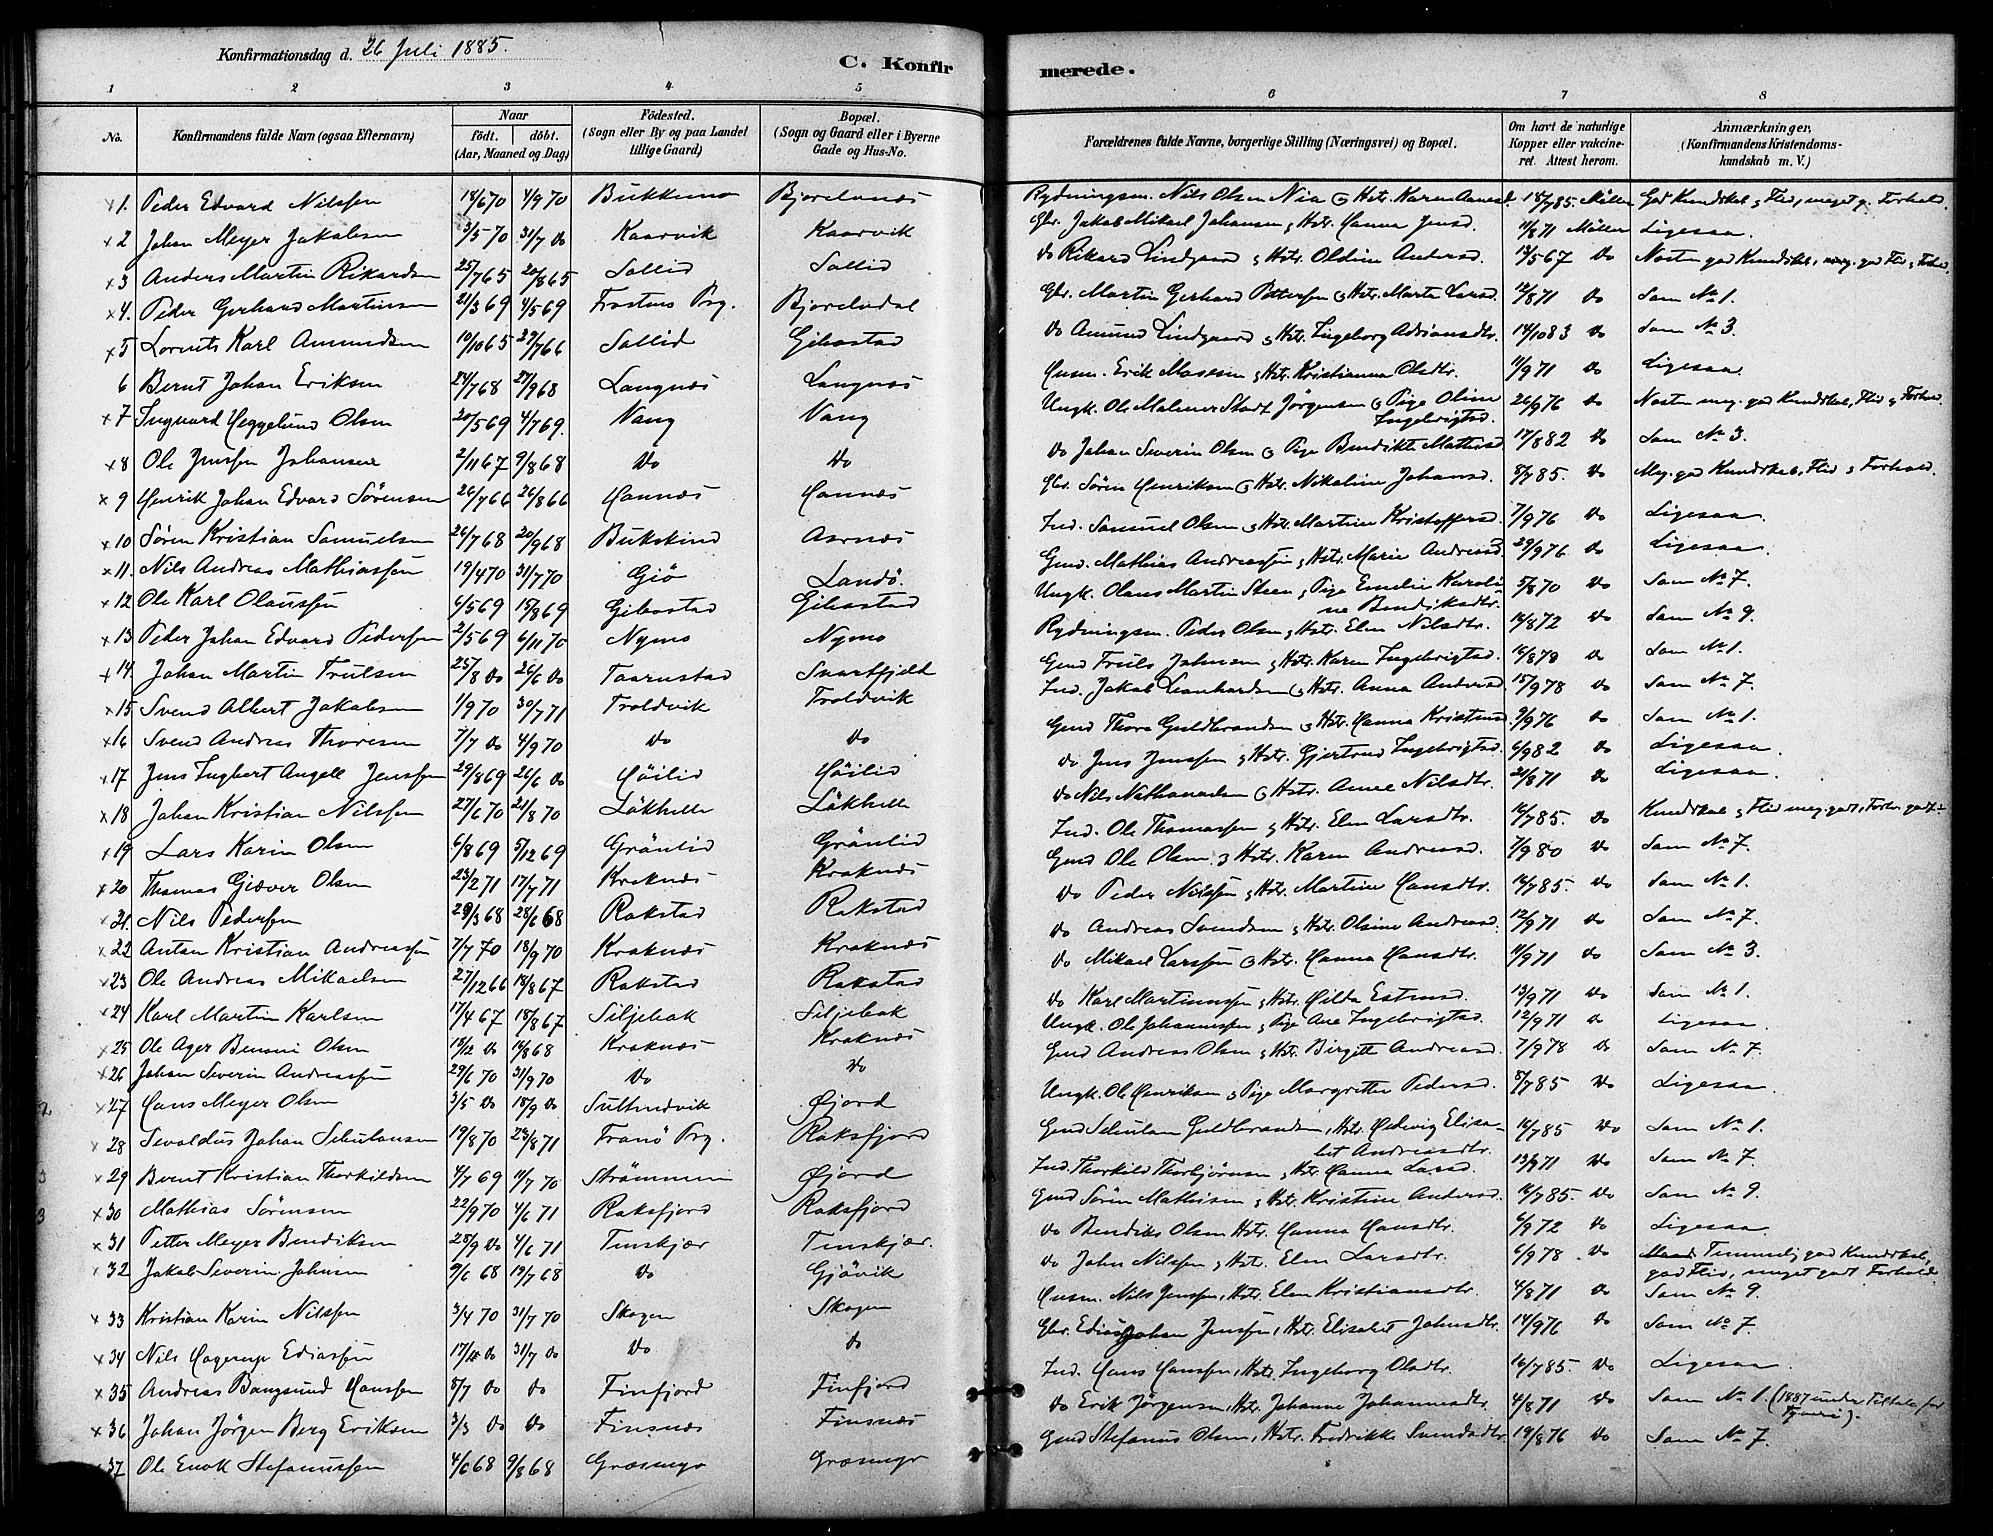 Konfirmationsdag d. 26 Juli 1885.
C. Konfir merede.
1 2 3 4 5 6 7 8
No. Konfirmandens fulde Navn (ogsaa Efternavn) Naar födt. döbt. (Aar, Maaned og Dag) Födested. (Sogn eller By og paa Landet tillige Gaard) Bopæl. (Sogn og Gaard eller i Byerne Gade og Hus-No. Forældrenes fulde Navne, borgerlige Stilling (Næringsvei) og Bopæl. Om havt de naturlige Kopper eller vakcineret. Attest herom. Anmærkninger, (Konfirmandens Kristendomskundskab m. V.)
x1. Peder Edvard Nilssen 18/6 70 4/9 70 Bukkemo Bjorelvnæs Rydningsm. Nils Olsen Nia & Hstr. Karen 18/7 85 Möller God Kundskab & Flid, meget g. Forhold.
x2 Johan Meyer Jakobsen 3/5 70 31/7 do Kaarvik Kaarvik Gbr. Jakob Mikael Johansen & Hstr. Hanna Jensd. 11/8 71 Möller Ligesaa.
x3 Anders Martin Rikardsen 25/7 65 20/8 65 Sollid Sollid do Rikard Lindgaard & Hstr. Oldine Andersd. 13/5 67 do Næsten god Kundskab, meg. god Flid & Forh.
x4. Peder Gerhard Martinsen 21/3 69 4/5 69 Trostens Prg. Bjorelvdal Gbr. Martin Gerhard Pettersen & Hstr. Marta Larsd. 12/8 71 do Som No 1.
x5 Lornts Karl Amundsen 10/10 65 29/7 66 Sollid Gibostad do Amund Lindgaard & Hstr. Ingeborg Adriansdtr. 14/10 83 do Som No 3.
6 Bernt Johan Eriksen 24/7 68 27/9 68 Langnæs Langnæs Husm. Erik Mosesen & Hstr. Kristianna Olsdtr. 11/9 71 do Ligesaa.
x7 Ingvard Heggelund Olsen 20/5 69 4/7 69. Vang Vang Ungk. Ole Jörgensen & Pige Oline Ingebrigtsd. 26/9 76 do Næsten meg. god Kundskab, Flid & Forhold.
x8 Ole Jenssen Johansen 2/11 67 9/8 68 do do do Johan Severin Olsen & Pige Bendikte Mathisd. 17/8 82 do Som No 3.
x9 Henrik Johan Edvard Sörensen 26/7 66 26/8 66 Hannæs Hannæs Gbr. Sören Henriksen & Hstr. Nikoline Johansd. 8/7 85. do Meg. god Kundskab, Flid & Forhold.
x10 Sören Kristian Samuelsen 26/7 68 20/9 68 Bukskind Aarnæs Ind. Samuel Olsen & Hstr. Martine Kristoffersd. 7/9 76 do Ligesaa.
x11. Nils Andreas Mathiassen 19/4 70 31/7 70 Giö Landö. Gmd. Mathias Andreassen & Hstr. Marie Andreasd. 29/9 76 do Ligesaa
x12 Ole Karl Olaussen 4/5 69 15/8 69 Gibostad Gibostad Ungk. Olaus Martin Steen & Pige Emelie Karoline Bendiksdtr. 5/8 70 do Som No 7.
x13 Peder Johan Edvard Pedersen 2/5 69 6/11 70 Nymo Nymo Rydningsm. Peder Olsen & Hstr. Elen Nilsdtr. 14/8 72 do Som No 9.
x14. Johan Martin Trulsen 25/8 do 26/6 do Taarnstad Svartfjeld Gmd Truls Johnsen & Hstr. Karen Ingebrigtsd. 16/8 78 do Som No 1.
x15 Svend Albert Jakobsen 1/9 70 30/7 71 Troldvik Troldvik Ind. Jakob Leonhardsen & Hstr. Anna Andersd. 15/9 78 do Som No 7.
x16 Svend Andreas Thoresen 7/7 do 4/9 70 do do Gmd Thore Guldbrandsen & Hstr. Hanna Kristensd. 9/9 76 do Som No 1.
x17 Jens Ingbert Angell Jenssen 29/8 69 26/6 do Höilid Höilid do Jens Jenssen & Hstr. Gjertrud Ingebrigtsd. 6/9 82 do Ligesaa.
x18 Johan Kristian Nilssen 27/6 70 21/8 70 Lökhelle Lökhelle do Nils Nathanaelsen & Hstr. Anne Nilsdtr. 21/8 71 do Ligesaa.
x19 Lars Karin Olsen 6/8 69 5/12 69 Grönlid Grönlid Ind. Ole Thomassen & Hstr. Elen Larsdtr. 16/7 85. do Kundskab & Flid meg. godt, Forh. godt.
x20 Thomas Giæver Olsen 23/2 71 17/7 71 Kraknæs Kraknæs Gmd Ole Olsen & Hstr. Karen Andreasd. 7/9 80 do Som No 7.
x21. Nils Pedersen 29/3 68 28/6 68 Rakstad Rakstad do Peder Nilssen & Hstr. Martine Hansdtr. 16/7 85. do Som No 1.
x22 Anton Kristian Andreassen 7/7 70 18/9 70 Kraknæs Kraknæs do Andreas Svendsen & Hstr. Olsine Andreasd. 12/9 71 do Som No 7.
x23 Ole Andreas Mikaelsen 27/12 66 18/8 67 Rakstad Rakstad do Mikael Larssen & Hstr. Hanna Hansdtr. 11/9 71 do Som No 3.
x24 Karl Martin Karlsen 17/4 67 18/8 67 Siljebak Siljebak do Karl Martinussen & Hstr. Hilda Estensd. 13/9 71 do Som No 1.
x25 Ole Ager Benoni Olsen 15/12 do 14/8 68 Kraknæs Kraknæs Ungk. Ole Johannessen & Pige Ane Ingebrigtsd. 12/9 71 do Ligesaa.
x26 Johan Severin Andreassen 29/6 70 31/9 70 do do Gmd Andreas Olsen & Hstr. Birgitte Andreasd. 7/9 78 do Som No 7.
x27 Hans Meyer Olsen 3/5 do 18/9 do Sultindvik Øjord Ungk. Ole Henriksen & Pige Margrethe Pedersd. 8/7 85 do Ligesaa.
x28 Sevaldus Johan Schulansen 19/8 70 29/8 71 Tranö Prg. Roksfjord Gmd Schulan Guldbrandsen, Hstr. Hedevig Elisabet Andreasdtr. 16/7 85 do Som No 1.
x29 Bernt Kristian Thorkildsen 4/7 69 11/7 70 Strömmen Øjord Ind. Thorkild Thorbjörnsen & Hstr. Hanna Larsd. 13/9 71 do Som No 7.
x30 Mathias Sörensen 22/9 70 4/6 71 Roksfjord Roksfjord Gmd Sören Mathisen & Hstr. Kristine Andersd. 16/7 85. do Som No 9.
x31 Petter Meyer Bendiksen 25/9 do 4/6 71 Tenskjær Tenskjær. do Bendiks Olsen Hstr. Hanna Hansdtr. 6/9 72 do Ligesaa
x32 Jakob Severin Johnsen 9/6 68 19/7 68 do Gjövik do John Nilssen & Hstr. Elen Larsdtr. 6/9 78 do Temmelig god Kundskab, god Flid, meget godt Forhold.
x33 Kristian Karin Nilssen 3/4 70 31/7 70 Skogen Skogen Husm. Nils Jenssen, Hstr. Elen Kristiansdtr. 4/8 71 do Som No 9.
x34 Nils Hagerup Ediassen 17/10 do 31/7 do do do Gbr. Edias Johan Jenssen, Hstr. Elisabet Johnsdtr. 14/9 76 do Som No 7.
x35 Andreas Bangsund Hanssen 8/7 do do Finfjord Finfjord Ind. Hans Hanssen, Hstr. Ingeborg Olsdtr. 16/7 85 do Ligesaa.
x36 Johan Jörgen Berg Eriksen 3/3 do do Finsnæs Finsnæs do Erik Jörgensen, Hstr. Johanne Johannesdtr. 4/8 71 do Som No 1. (1887 under Tiltale for Tyveri).
37 Ole Enok Stefanussen 4/6 68 9/8 68 Græsmyr Græsmyr Gmd Stefanus Olsen, Hstr. Fredrikke Svendsdtr. 19/8 76 do Som No 7.